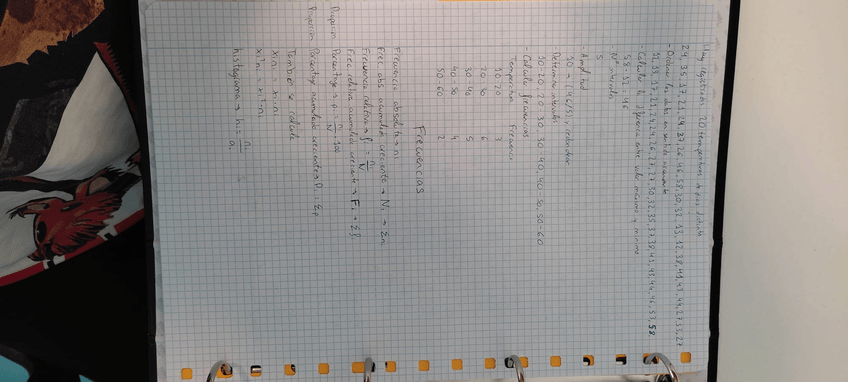 Hay registradas 20 temperaturas
24, 35, 17, 21, 24, 37, 26, 46, 58, 30, 32, 13, 12, 38, 41, 43, 44, 27, 53, 27
- Ordenar los datos en sentido
12, 13, 17, 21, 24, 24, 26, 27, 27, 30, 32, 35, 37, 38, 41, 43, 44, 46, 53, 58
- Calcular la diferencia entre valor máximo y mínimo
58 - 12 = 46
- Nº intervalos
5
- Amplitud
10 → (46/5) = redondear
- Determinar intervalos
10-20, 20-30, 30-40, 40-50, 50-60
- Calcular frecuencias
Temperatura Frecuencia
10-20 3
20-30 6
30-40 5
40-50 4
50-60 2
Frecuencias
Frecuencia absoluta → ni
Frec. abs. acumulada creciente → Ni → Σni
Frecuencia relativa → fi = ni/N
Frec. relativa acumulada creciente → Fi → Σfi
Porcentaje → pi = ni/N · 100
Porcentaje acumulado creciente → Pi = Σp
También se calcula
xini = xi · ni
xi²ni = xi² · ni
histograma → hi = ni/ai